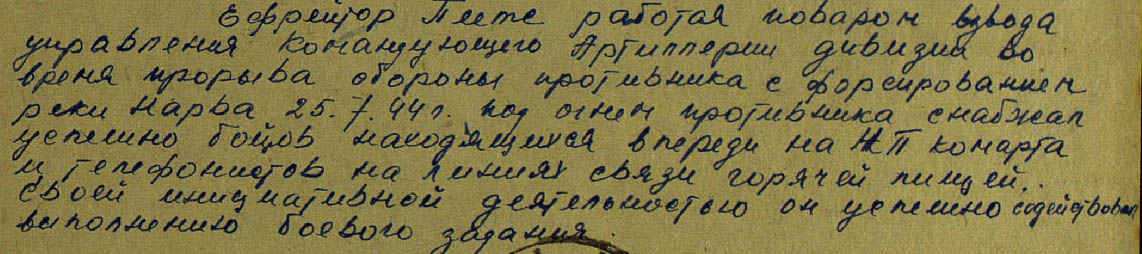 Ефрейтор Пите работая поваром взвода
управления командующего Артиллерии дивизии во
время прорыва обороны противника с форсированием
реки Нарва 25.7.44 г. под огнем противника снабжал
успешно бойцов находящихся впереди на НП комарта
и телефонистов на линиях связи горячей пищей..
Своей инициативной деятельностью он успешно содействовал
выполнению боевого задания.